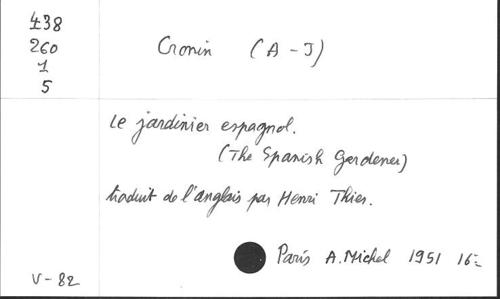 438
260
1
5
Cronin (A-J)
Le jardinier espagnol.
(The Spanish Gardener)
traduit de l'anglais par Henri Thies.
Paris A. Michel 1951 16=
V-82